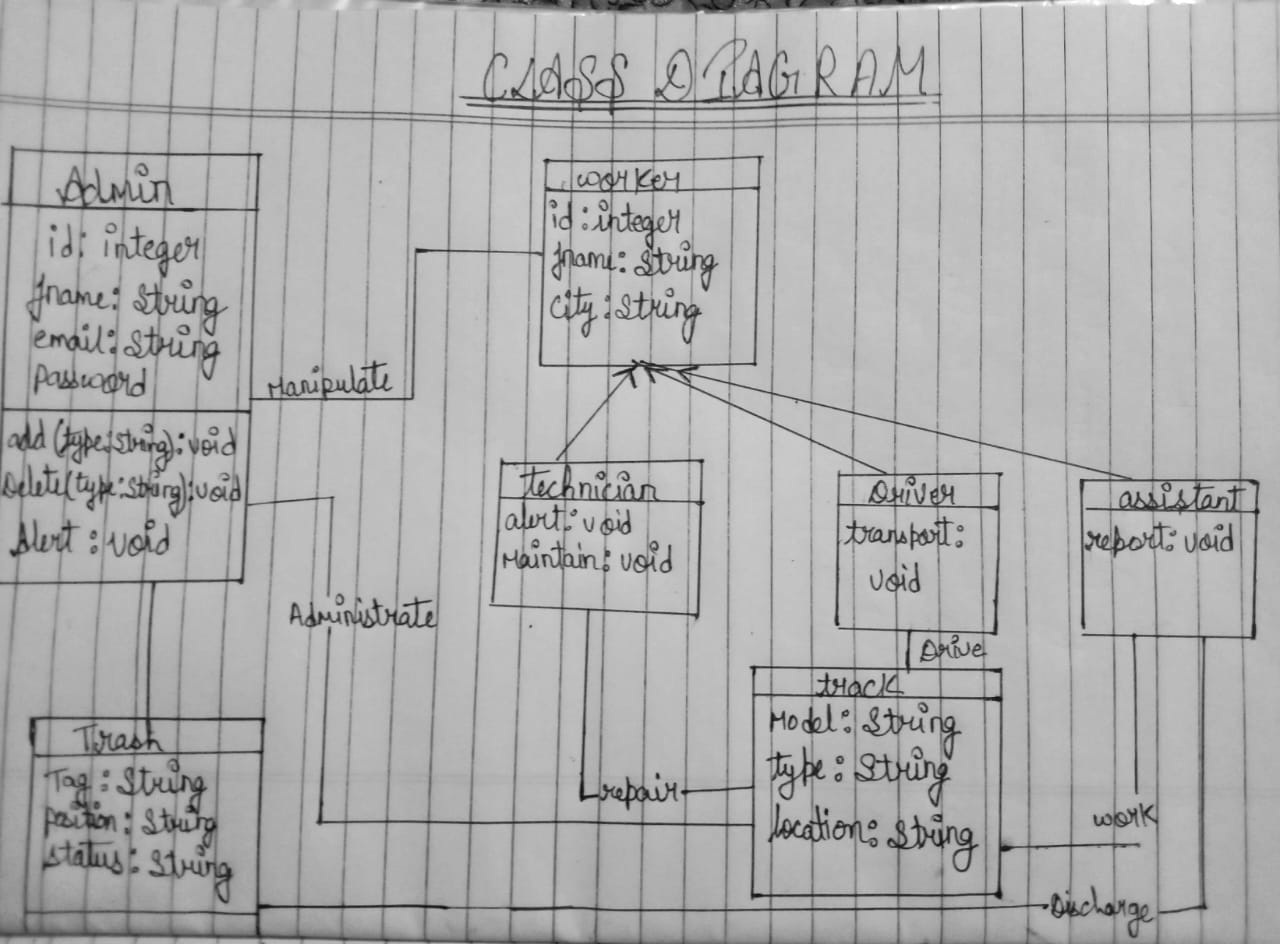 CLASS DIAGRAM
Admin
id: integer
fname: String
email: String
Password
add(type:string): void
Delete(type:string): void
Alert: void
Manipulate
worker
id: integer
fname: String
city: String
technician
alert: void
Maintain: void
Driver
transport:
void
assistant
report: void
Administrate
Drive
track
Model: String
type: String
location: String
repair
work
Discharge
Trash
Tag: String
position: String
status: String